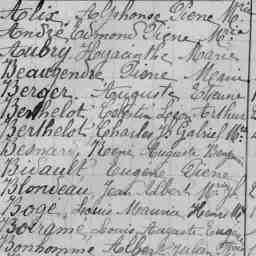 Alix, Alphonse Pierre Mie
André Edmond Pierre Mie
Aubry Hyacinthe Marie
Beaugendre Pierre
Berger, Auguste Etienne
Berthelot Célestin Léon Arthur
Berthelot Charles Gabriel
Besnard, René Auguste
Bidault Eugène Pierre
Blondeau Jean Albert
Boge, Louis Maurice Henri
Louis Auguste
Bonhomme Albert Julien